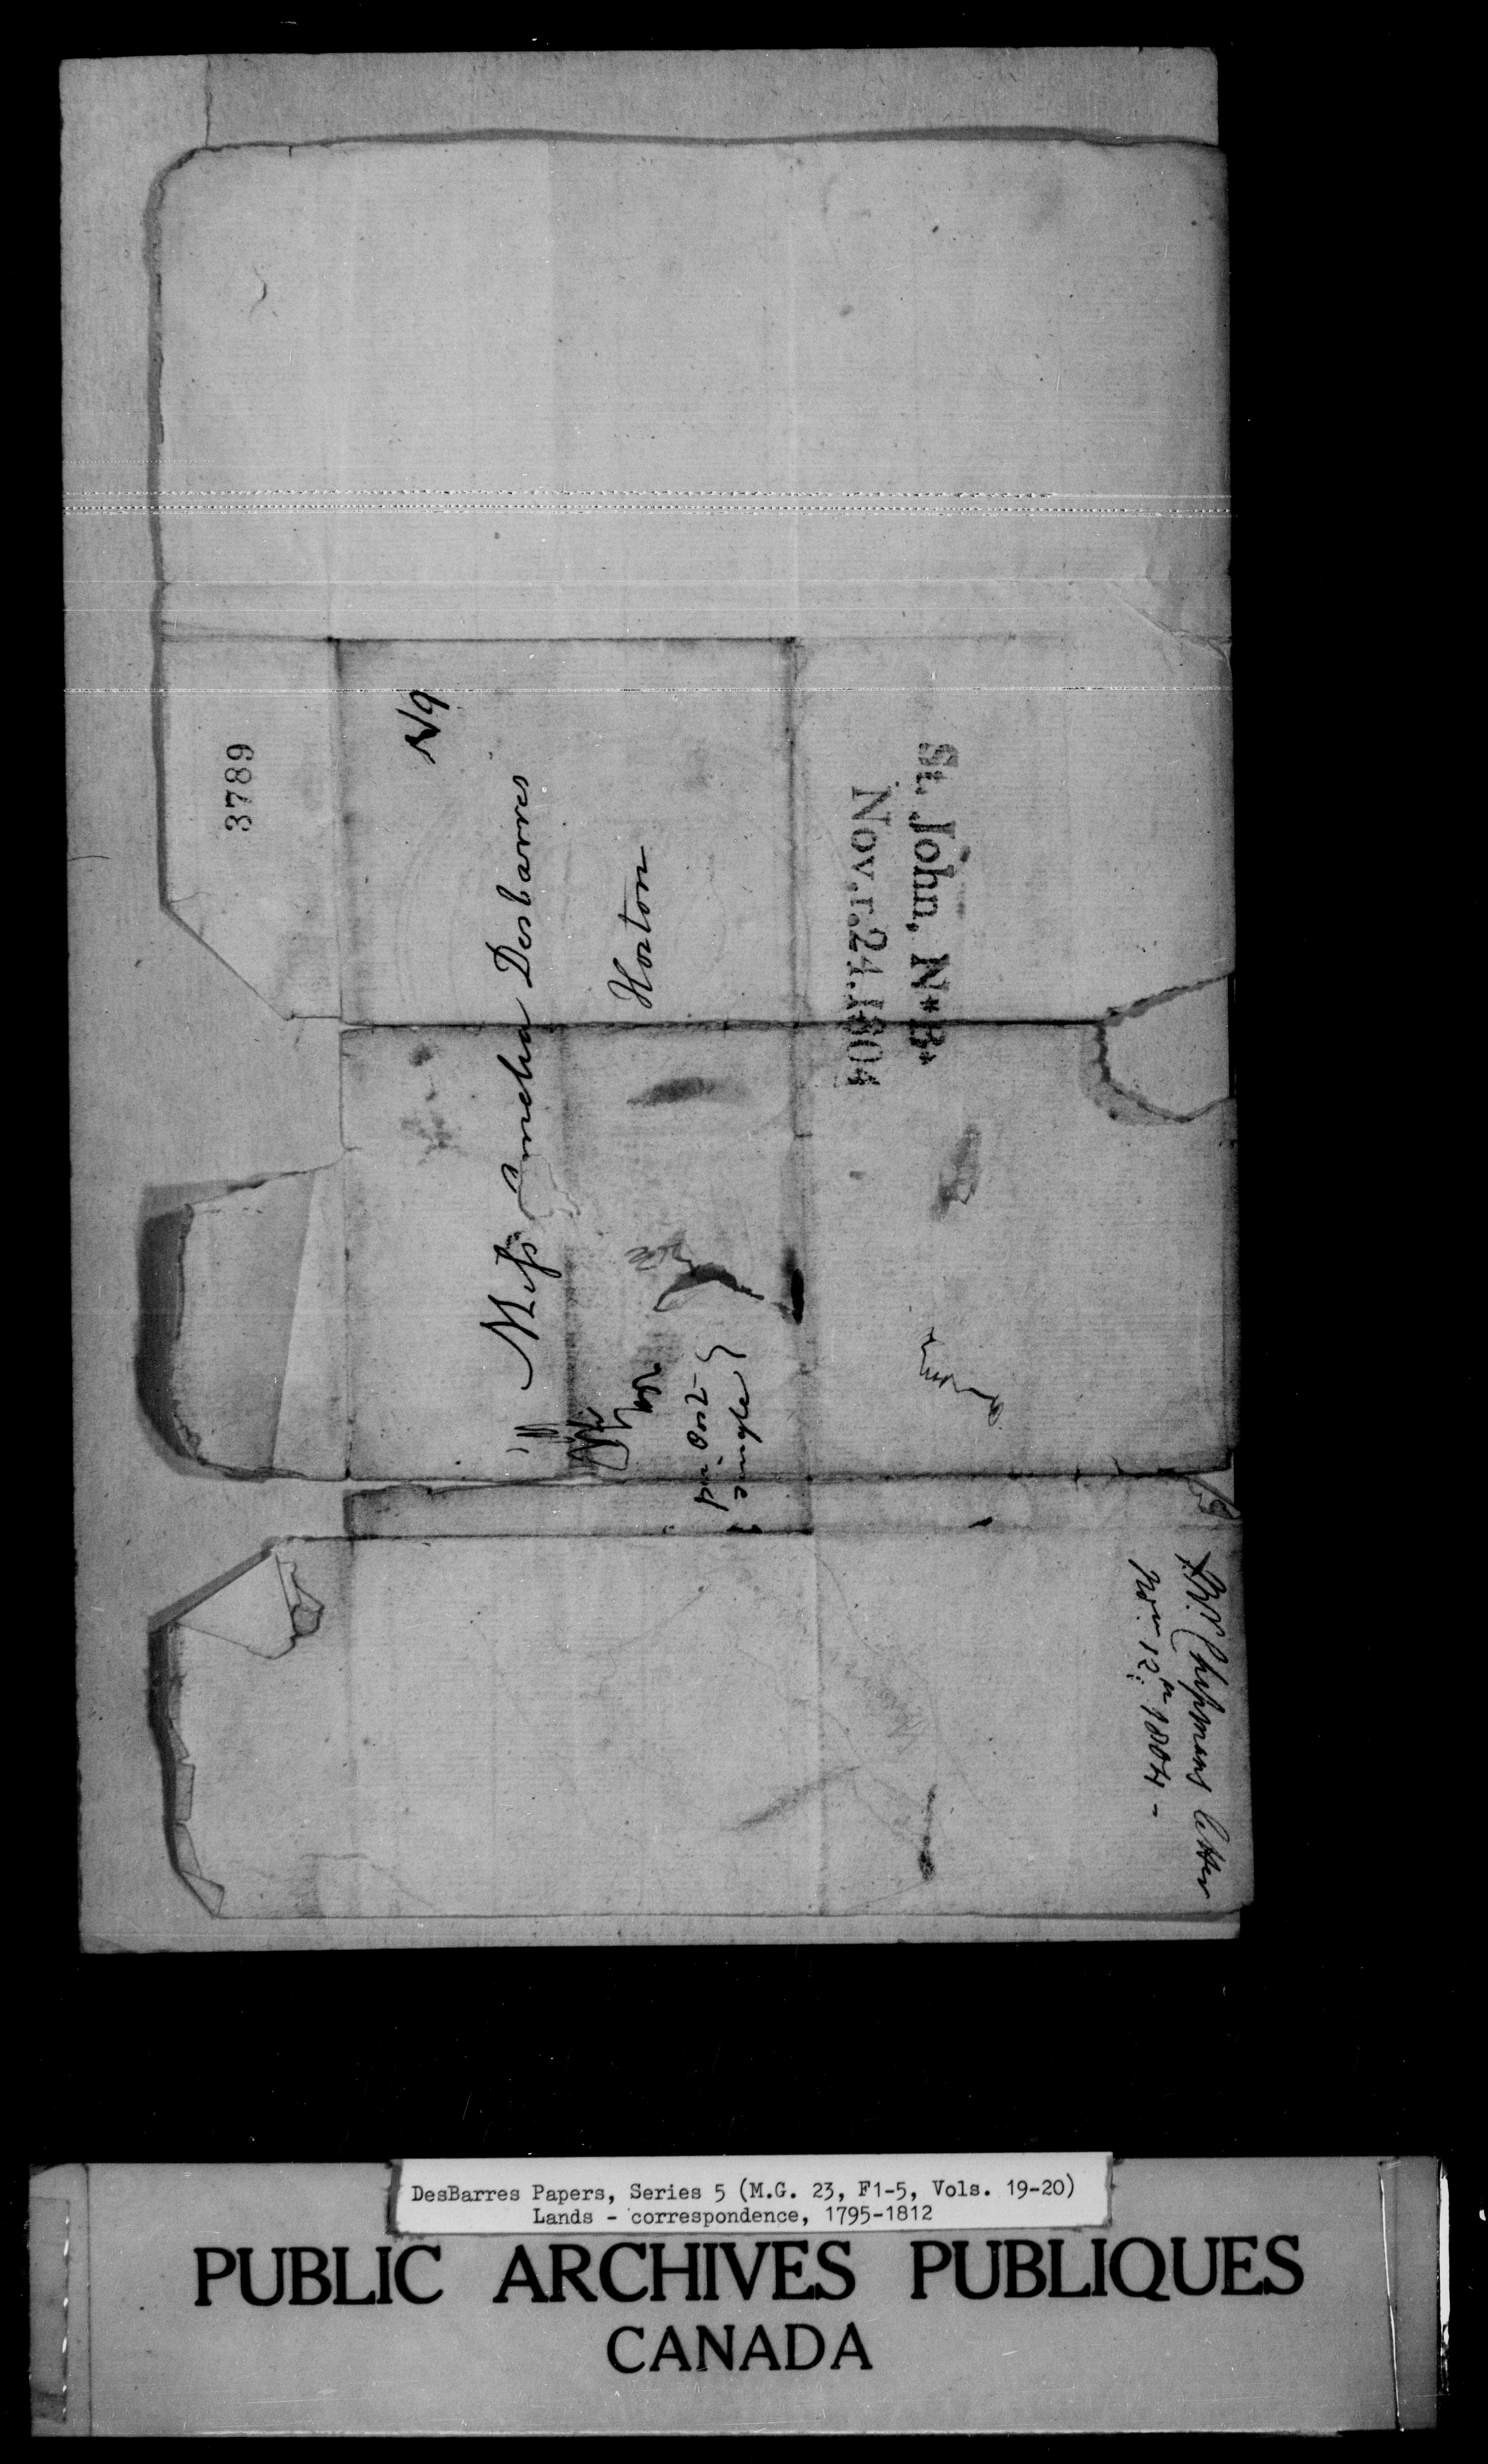 3789
N9
Miss Amelia Desbarres
Horton
per Post
single
St. John, N*B*
Nov.r.24.1804
Mr. Chipmans letter
Novr. 12th 1804 -
DesBarres Papers, Series 5 (M.G. 23, F1-5, Vols. 19-20)
Lands - correspondence, 1795-1812
PUBLIC ARCHIVES PUBLIQUES
CANADA